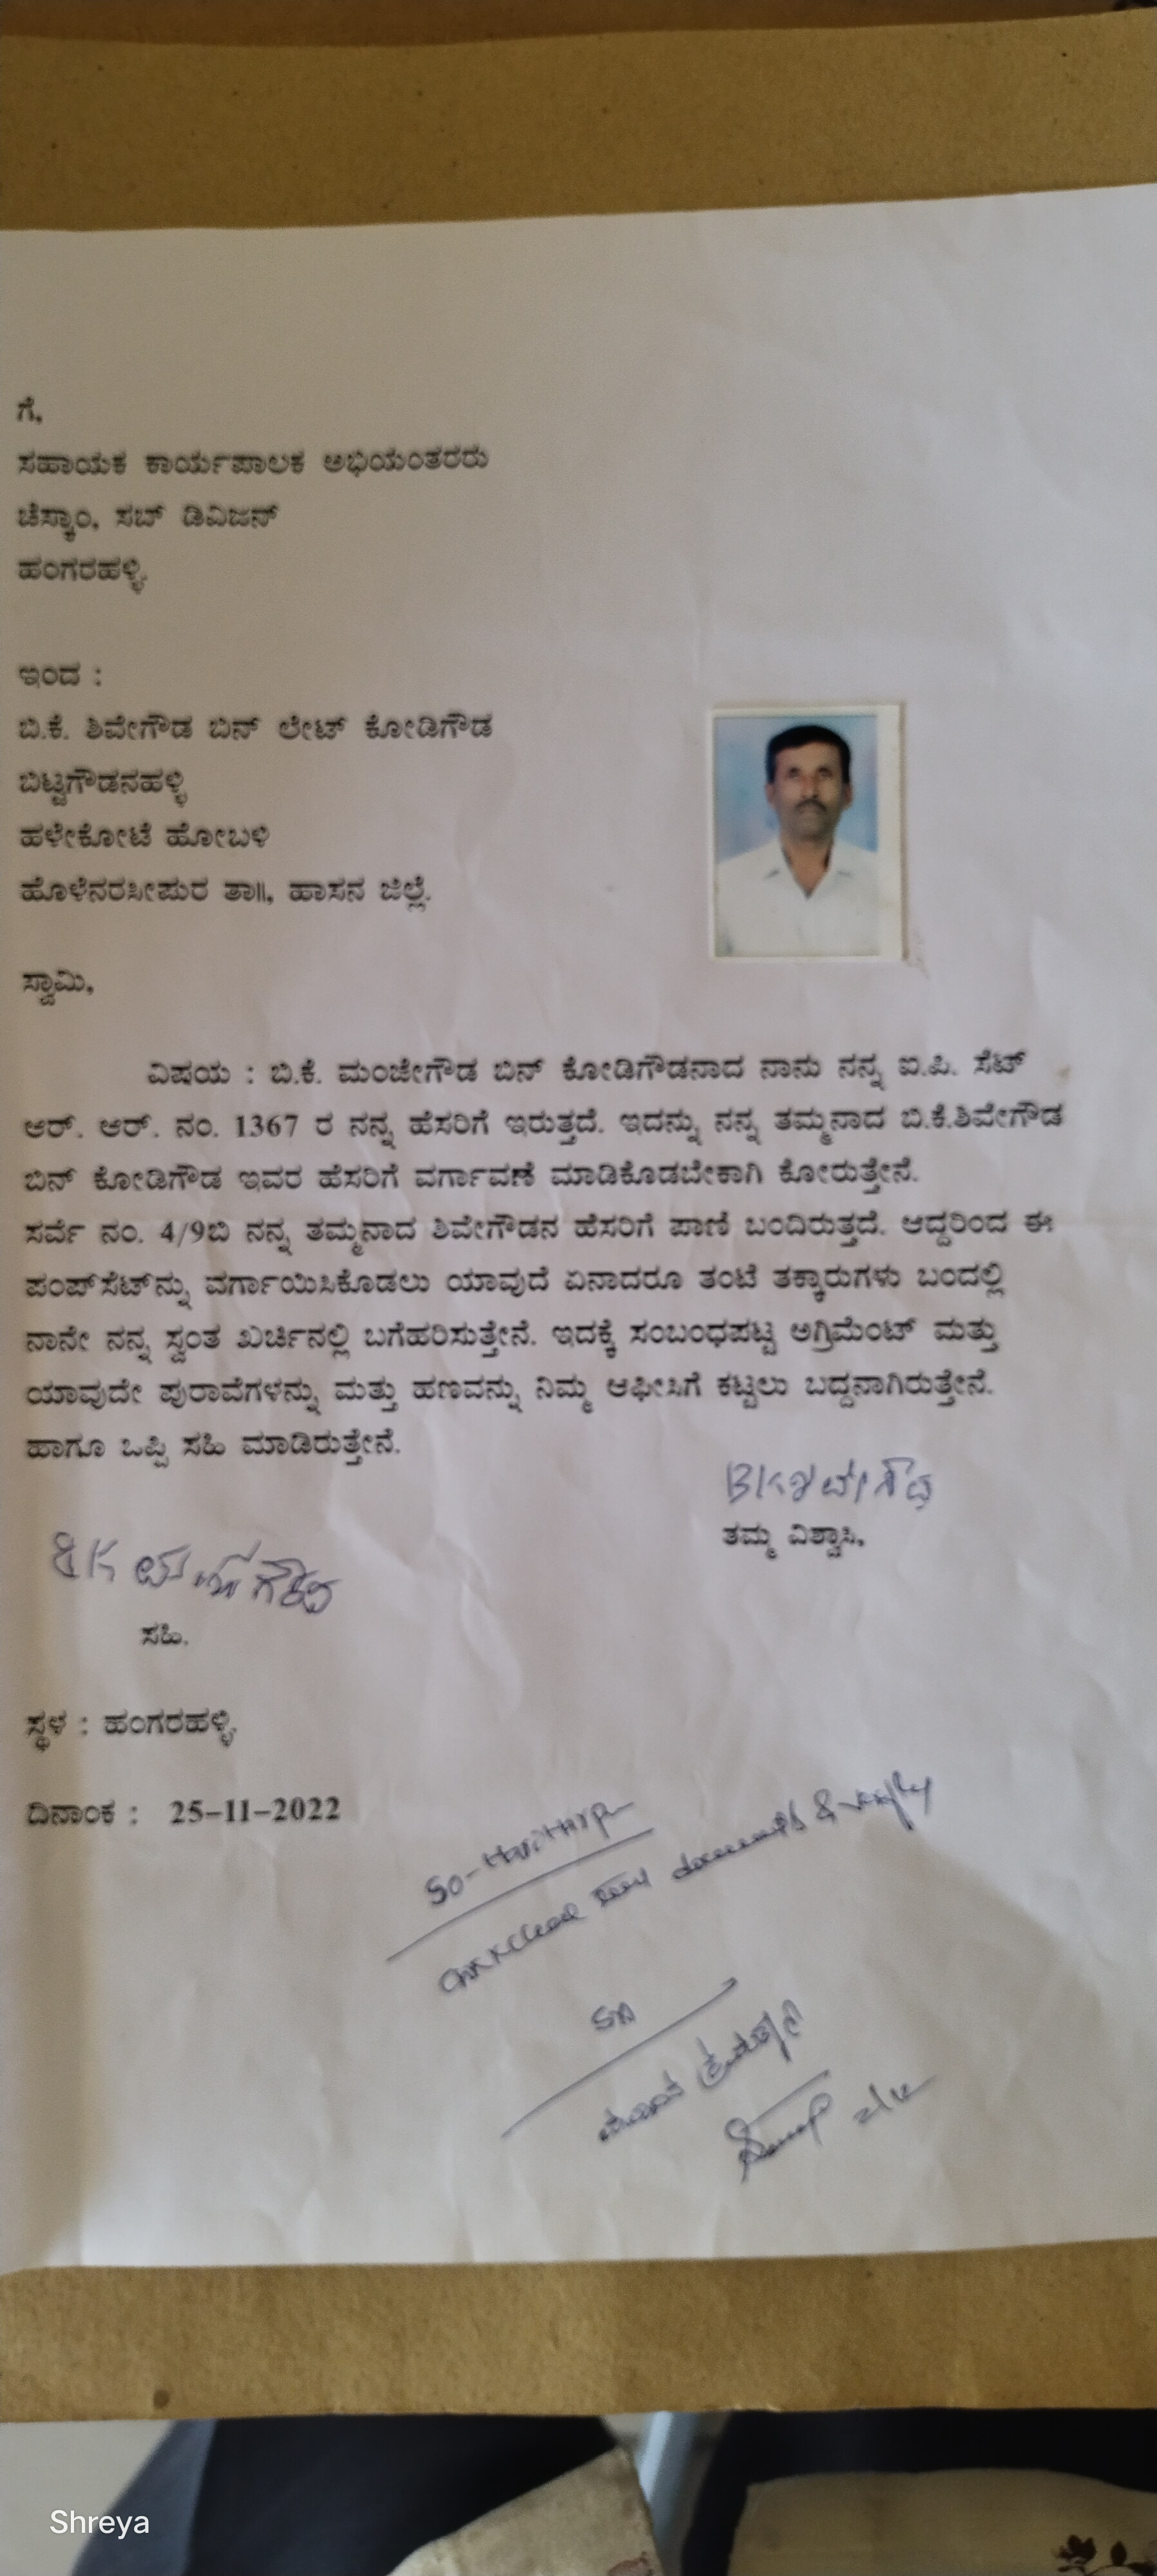 ಗೆ,
ಸಹಾಯಕ ಕಾರ್ಯಪಾಲಕ ಅಭಿಯಂತರರು
ಚೆಸ್ಕಾಂ, ಸಬ್ ಡಿವಿಜನ್
ಹಂಗರಹಳ್ಳಿ.
ಇಂದ :
ಬಿ.ಕೆ. ಶಿವೇಗೌಡ ಬಿನ್ ಲೇಟ್ ಕೋಡಿಗೌಡ
ಬಿಟ್ಟಗೌಡನಹಳ್ಳಿ
ಹಳೇಕೋಟೆ ಹೋಬಳಿ
ಹೊಳೆನರಸೀಪುರ ತಾ||, ಹಾಸನ ಜಿಲ್ಲೆ.
ಸ್ವಾಮಿ,
ವಿಷಯ : ಬಿ.ಕೆ. ಮಂಜೇಗೌಡ ಬಿನ್ ಕೋಡಿಗೌಡನಾದ ನಾನು ನನ್ನ ಐ.ಪಿ. ಸೆಟ್
ಆರ್. ಆರ್. ನಂ. 1367 ರ ನನ್ನ ಹೆಸರಿಗೆ ಇರುತ್ತದೆ. ಇದನ್ನು ನನ್ನ ತಮ್ಮನಾದ ಬಿ.ಕೆ.ಶಿವೇಗೌಡ
ಬಿನ್ ಕೋಡಿಗೌಡ ಇವರ ಹೆಸರಿಗೆ ವರ್ಗಾವಣೆ ಮಾಡಿಕೊಡಬೇಕಾಗಿ ಕೋರುತ್ತೇನೆ.
ಸರ್ವೆ ನಂ. 4/9ಬಿ ನನ್ನ ತಮ್ಮನಾದ ಶಿವೇಗೌಡನ ಹೆಸರಿಗೆ ಪಾಣಿ ಬಂದಿರುತ್ತದೆ. ಆದ್ದರಿಂದ ಈ
ಪಂಪ್‌ಸೆಟ್‌ನ್ನು ವರ್ಗಾಯಿಸಿಕೊಡಲು ಯಾವುದೆ ಏನಾದರೂ ತಂಟೆ ತಕ್ಕಾರುಗಳು ಬಂದಲ್ಲಿ
ನಾನೇ ನನ್ನ ಸ್ವಂತ ಖರ್ಚಿನಲ್ಲಿ ಬಗೆಹರಿಸುತ್ತೇನೆ. ಇದಕ್ಕೆ ಸಂಬಂಧಪಟ್ಟ ಅಗ್ರಿಮೆಂಟ್ ಮತ್ತು
ಯಾವುದೇ ಪುರಾವೆಗಳನ್ನು ಮತ್ತು ಹಣವನ್ನು ನಿಮ್ಮ ಆಫೀಸಿಗೆ ಕಟ್ಟಲು ಬದ್ದನಾಗಿರುತ್ತೇನೆ.
ಹಾಗೂ ಒಪ್ಪಿ ಸಹಿ ಮಾಡಿರುತ್ತೇನೆ.
BK ಶಿವೇಗೌಡ
ತಮ್ಮ ವಿಶ್ವಾಸಿ,
BK ಮಂಜೇಗೌಡ
ಸಹಿ.
ಸ್ಥಳ : ಹಂಗರಹಳ್ಳಿ.
ದಿನಾಂಕ : 25-11-2022
SO-
documents &
SA
Shreya